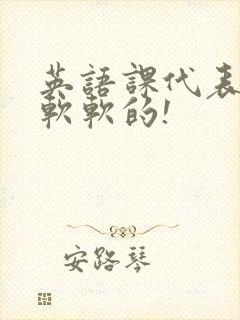 英語課代表
軟軟的!
安路琴